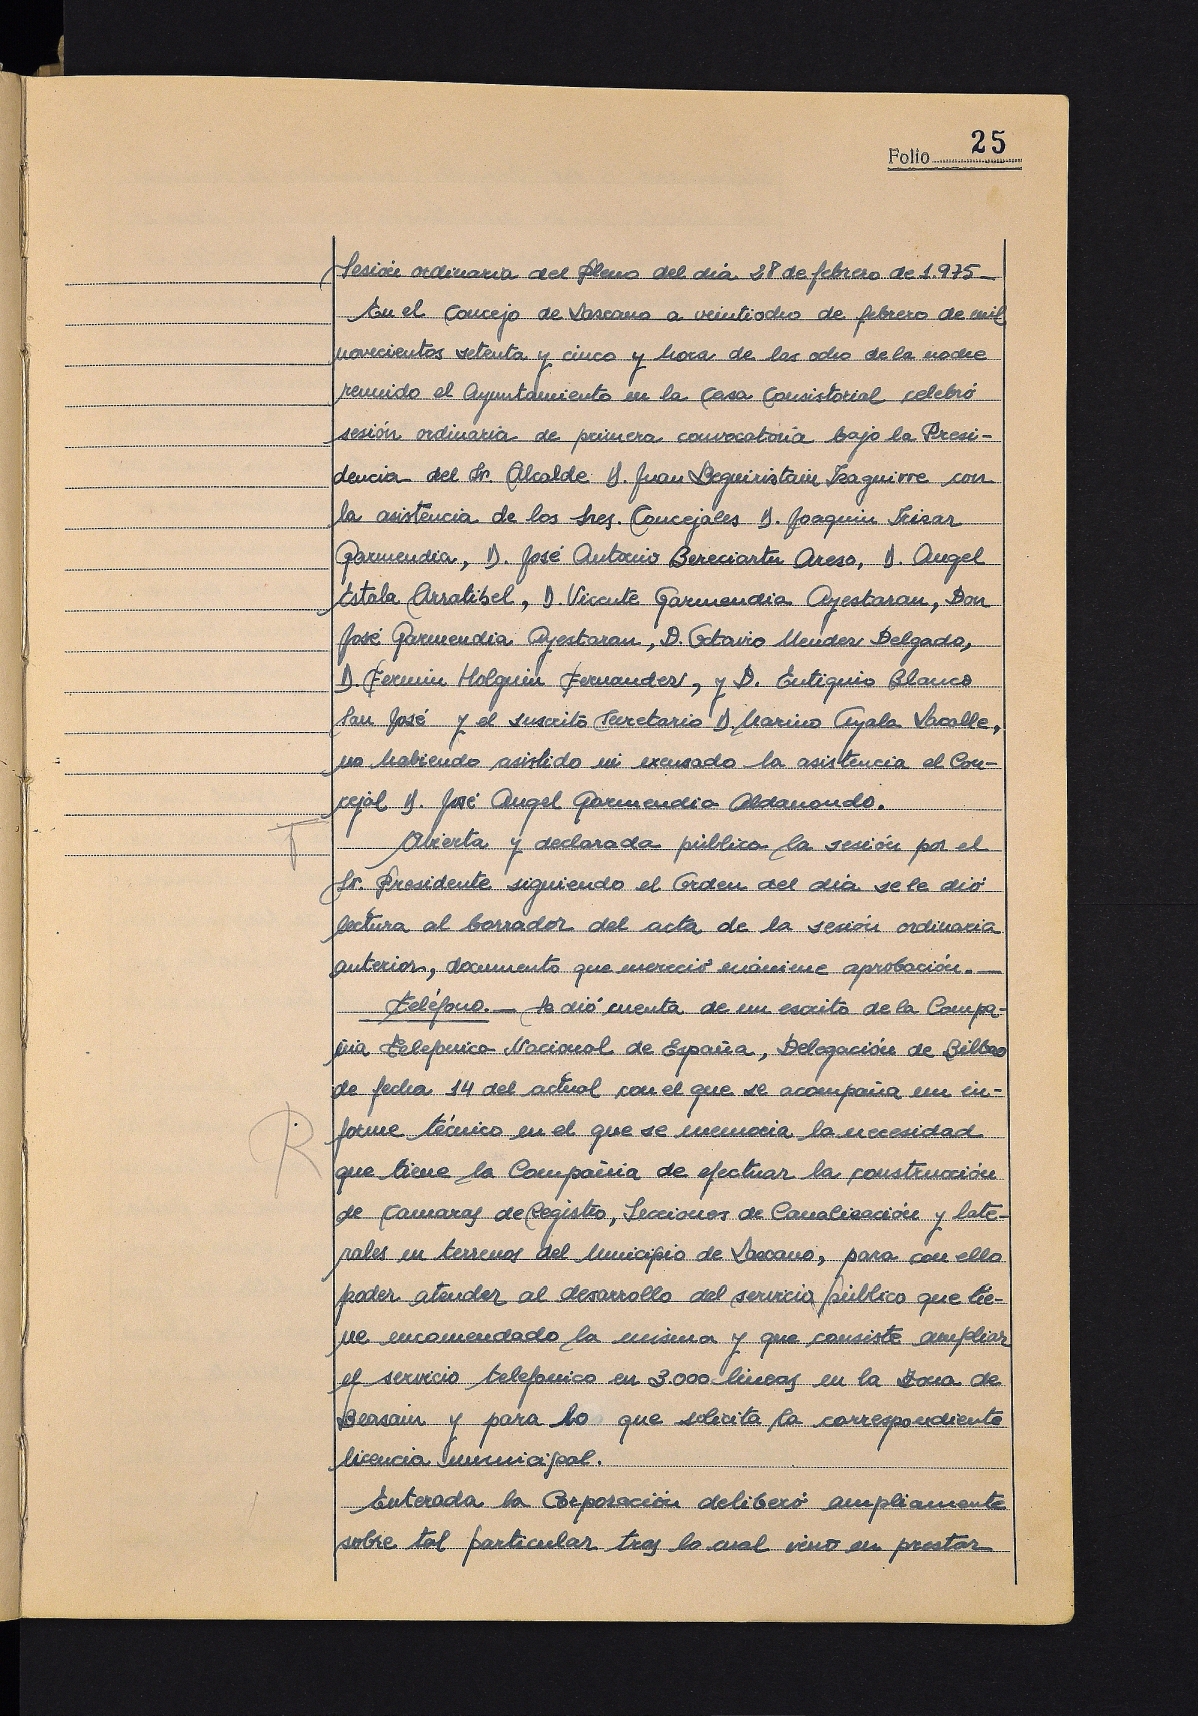 Folio 25
Sesión ordinaria del Pleno del día 28 de febrero de 1.975—
En el Concejo de Lascano a veintiocho de febrero de mil
novecientos setenta y cinco y hora de las ocho de la noche
reunido el Ayuntamiento en la Casa Consistorial celebró
sesión ordinaria de primera convocatoria bajo la Presi-
dencia del Sr. Alcalde D. Juan Beguiristain Izaguirre con
la asistencia de los Sres. Concejales D. Joaquin Irizar
Garmendia, D. José Antonio Bereciartu Areso, D. Angel
Estala Arratibel, D. Vicente Garmendia Ayestaran, Don
José Garmendia Ayestaran, D. Octavio Mendez Delgado,
D. Fermin Holguin Fernandez, y D. Eutiquio Blanco
San José y el suscrito Secretario D. Marino Ayala Lacalle,
no habiendo asistido ni excusado la asistencia el Con-
cejal D. José Angel Garmendia Aldanondo.
Abierta y declarada pública la sesión por el
Sr. Presidente siguiendo el Orden del día se le dió
lectura al borrador del acta de la sesión ordinaria
anterior, documento que mereció unánime aprobación.—
Teléfono.— Se dió cuenta de un escrito de la Compa-
ñia Telefonica Nacional de España, Delegación de Bilbao
de fecha 14 del actual con el que se acompaña un in-
forme técnico en el que se memoria la necesidad
que tiene la Compañia de efectuar la construcción
de Camaras de Registro, Secciones de Canalización y late-
rales en terrenos del Municipio de Lazcano, para con ello
poder atender al desarrollo del servicio público que tie-
ne encomendado la misma y que consiste ampliar
el servicio telefonico en 3.000 lineas en la Zona de
Beasain y para lo que solicita la correspondiente
licencia municipal.
Enterada la Corporación deliberó ampliamente
sobre tal particular tras lo cual vino en prestar
R